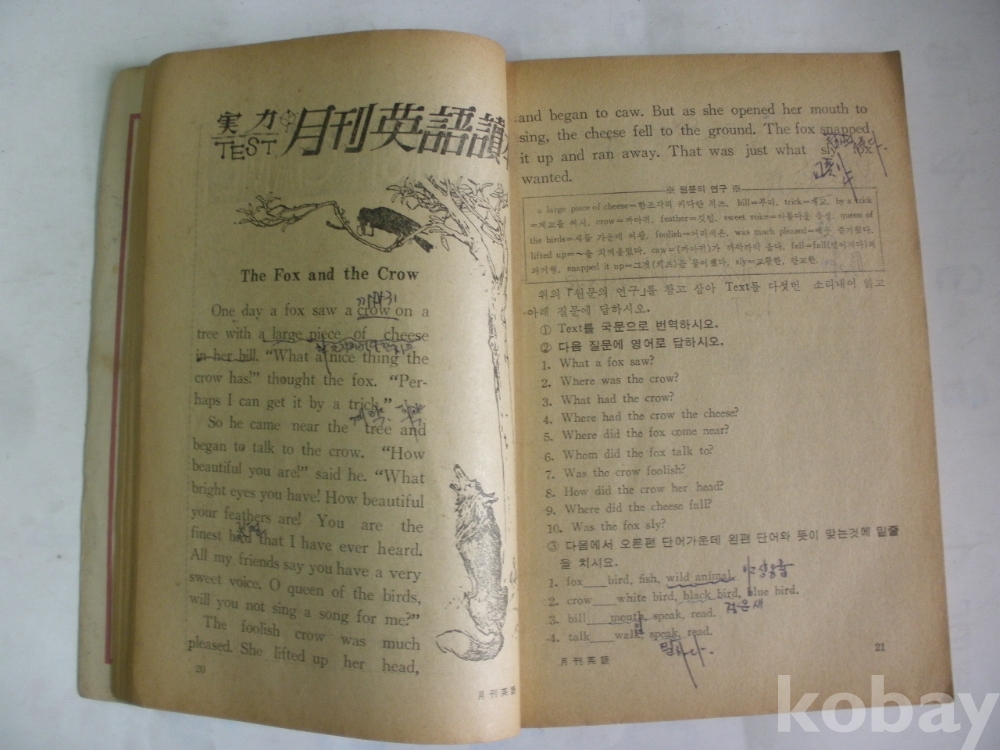 実力
TEST
月刊英語讀
The Fox and the Crow
One day a fox saw a crow on a
까마귀
tree with a large piece of cheese
in her bill. “What a nice thing the
crow has!” thought the fox. “Per-
haps I can get it by a trick.”
So he came near the tree and
began to talk to the crow. “How
beautiful you are!” said he. “What
bright eyes you have! How beautiful
your feathers are! You are the
finest bird that I have ever heard.
All my friends say you have a very
sweet voice. O queen of the birds,
will you not sing a song for me?”
The foolish crow was much
pleased. She lifted up her head,
20
月刊英語
and began to caw. But as she opened her mouth to
sing, the cheese fell to the ground. The fox snapped
it up and ran away. That was just what sly fox
wanted.
※ 원문의 연구 ※
a large piece of cheese=한조각의 커다란 치즈. bill=부리. trick=계교. by a trick
=계교를 써서. crow=까마귀. feather=깃털. sweet voice=아름다운 음성. queen of
the birds=새들 가운데 여왕. foolish=어리석은. was much pleased=매우 즐거웠다.
lifted up=~을 치켜올렸다. caw=(까마귀)가 까악까악 울다. fell=fall(떨어지다)의
과거형. snapped it up=그것(치즈)을 물어챘다. sly=교활한, 간교한.
위의 「원문의 연구」를 참고 삼아 Text를 다섯번 소리내어 읽고
아래 질문에 답하시오.
① Text를 국문으로 번역하시오.
② 다음 질문에 영어로 답하시오.
1. What a fox saw?
2. Where was the crow?
3. What had the crow?
4. Where had the crow the cheese?
5. Where did the fox come near?
6. Whom did the fox talk to?
7. Was the crow foolish?
8. How did the crow her head?
9. Where did the cheese fall?
10. Was the fox sly?
③ 다음에서 오른편 단어가운데 왼편 단어와 뜻이 맞는것에 밑줄
을 치시오.
1. fox___bird, fish, wild animal.
2. crow___white bird, black bird, blue bird.
검은새
3. bill___mouth, speak, read.
4. talk___walk, speak, read.
말하다.
月刊英語
21
kobay